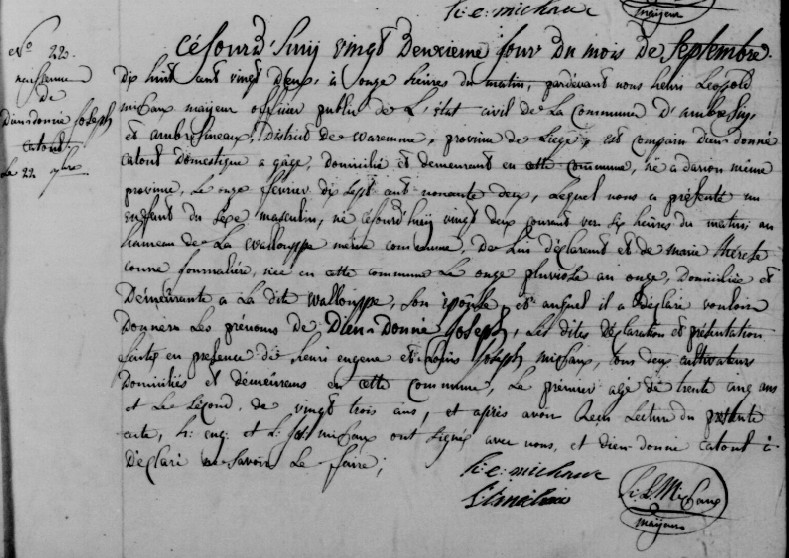 h: e: michaux
mayeur
N° 22.
naissance
de
Dieudonné Joseph
Catout
Le 22. 7bre
Cejourd'huy vingt Deuxieme jour Du mois de Septembre.
Dix huit cent vingt Deux, à onze heures du matin, pardevant nous henri Leopold
michaux mayeur officier public de L'état civil de La Commune D'ambresin
et ambresineaux, District de Waremme, province de Liege, est comparu dieu donné
Catout Domestique a gage, Domicilié et demeurant en cette Commune, né a darion même
province, Le onze fevrier dix sept cent nonante deux, Lequel nous a présenté un
enfant du Sexe masculin, né cejourd'huy vingt deux courant vers six heures du matin, au
hameau de La Wallouppe même commune, De Lui déclarant et de marie thérese
Journalière, née en cette commune Le onze pluviose an onze, Domiciliée et
Démeurante a La dite Wallouppe, Son épouse, et auquel il a déclaré vouloir
Donner Les prénoms de Dieu-Donné Joseph, Les dites Déclaration et présentation
faites en presence de henri eugene et Louis Joseph michaux, tous deux cultivateurs
Domiciliés et démeurans en cette Commune, Le prémier agé de trente cinq ans
et Le Second de vingt trois ans, et après avoir Lecture du présente
acte, h: eug: et L: Jos: michaux ont signés avec nous, et dieu-donné Catout à
Déclaré ne Savoir Le faire;
h: e: michaux
h. L. Michaux
mayeur